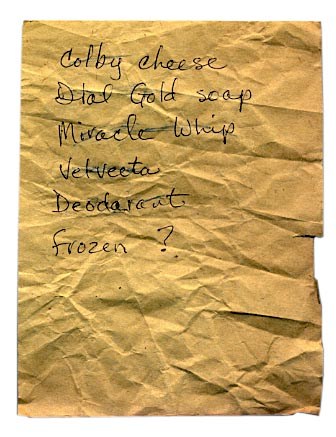 Colby cheese
Dial Gold soap
Miracle Whip
Velveeta
Deodarant
frozen ?